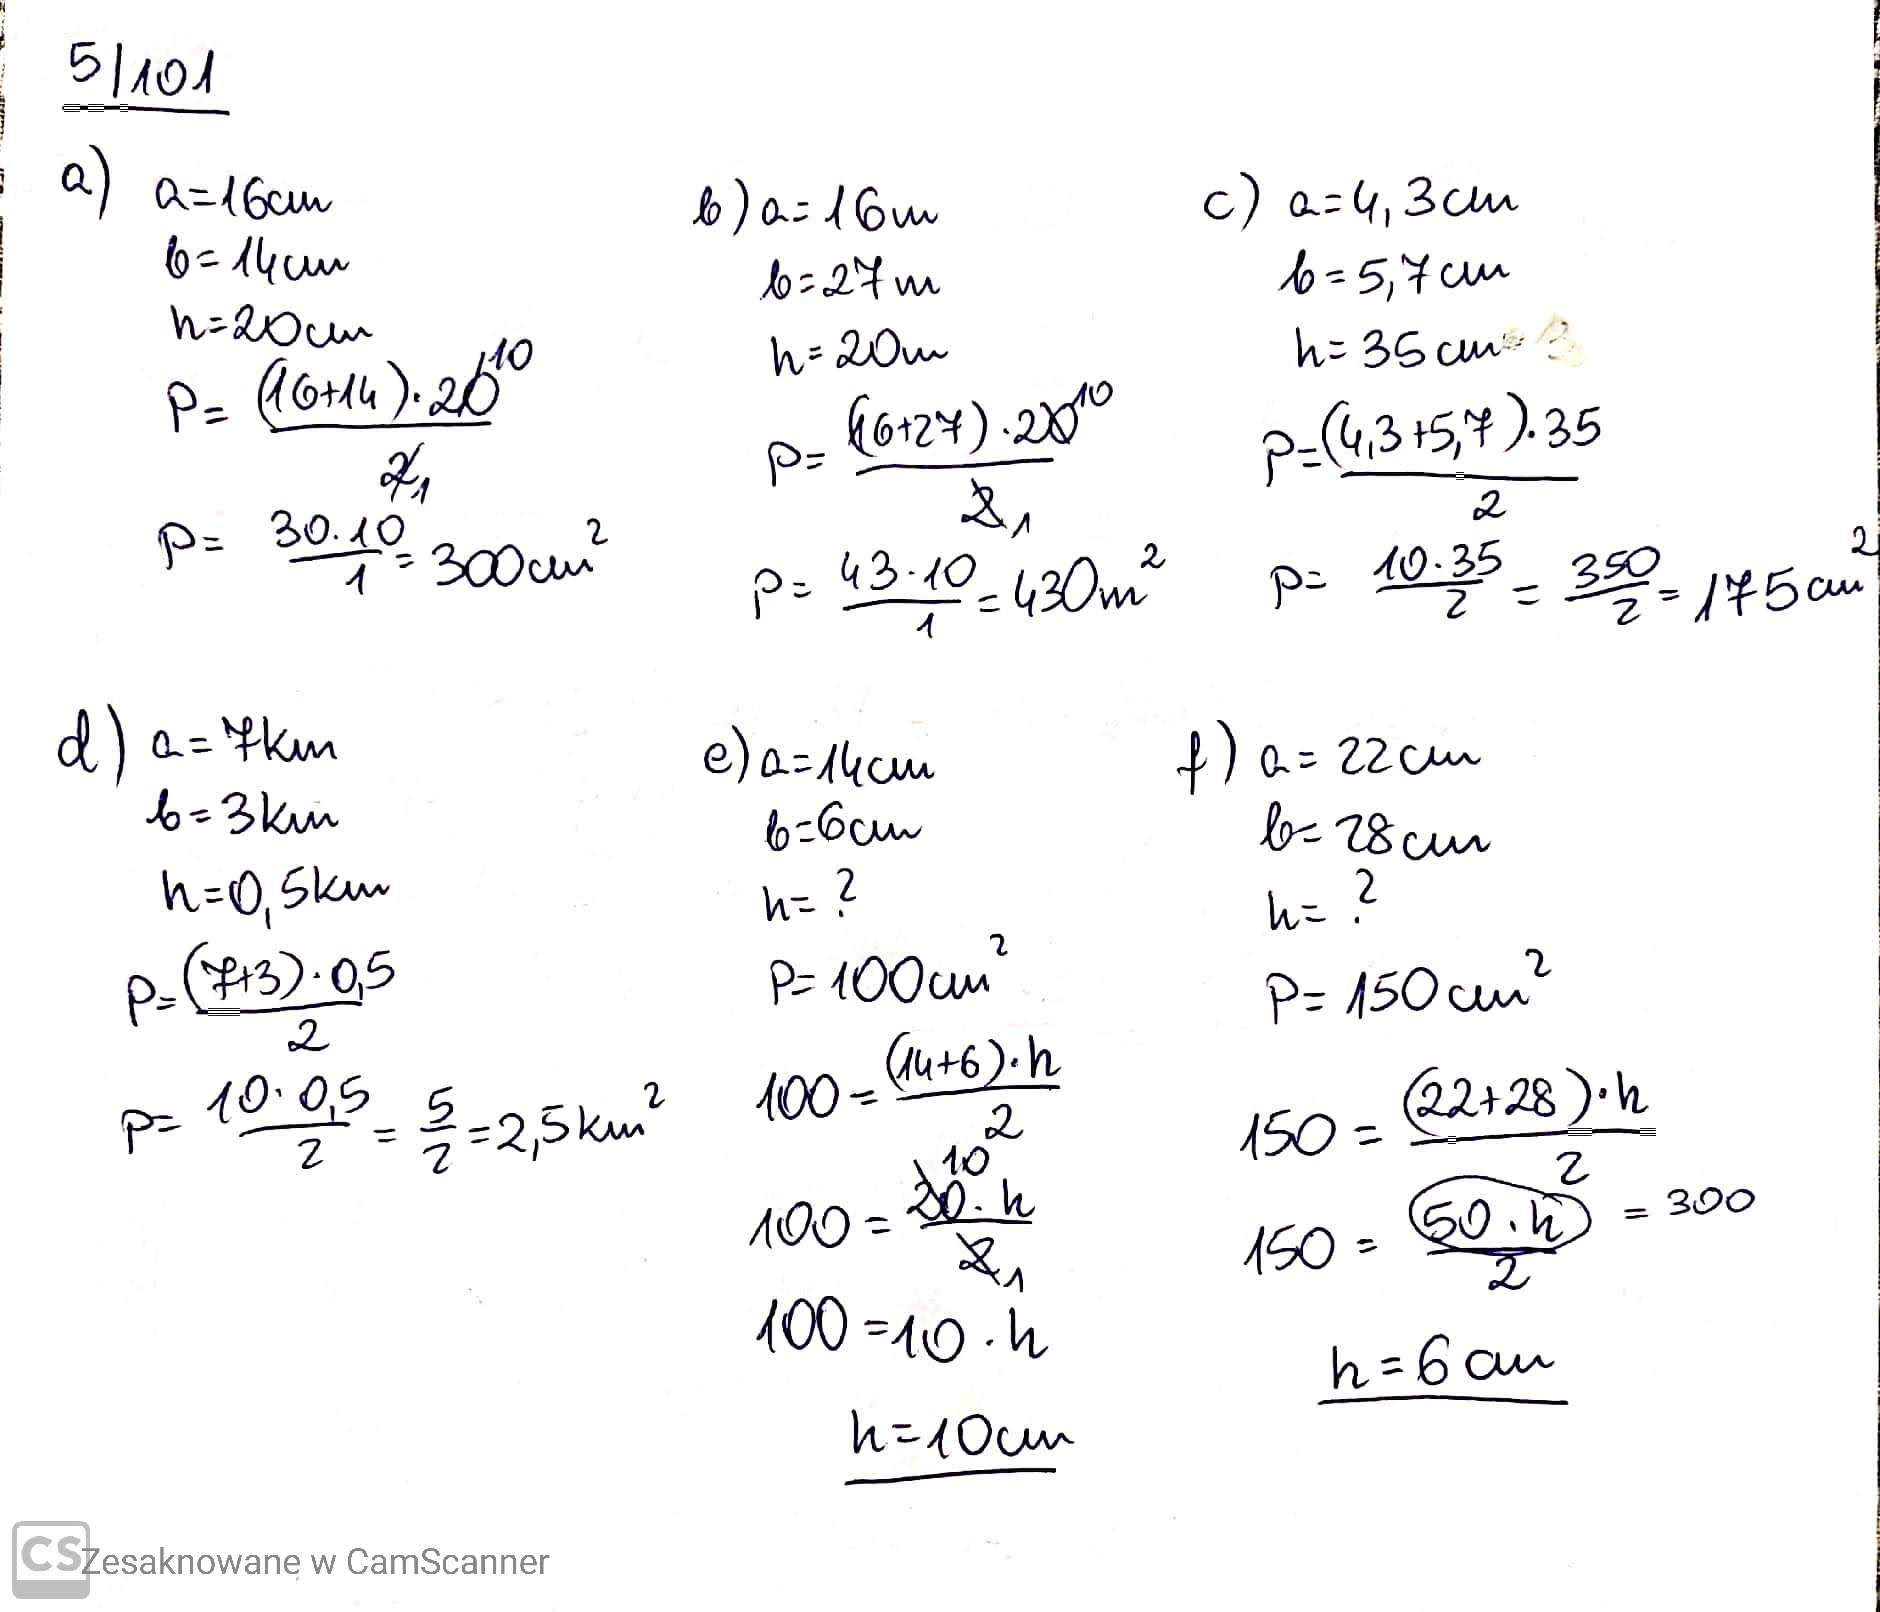 5/101
a) a=16cm
b=14cm
h=20cm
P= (16+14)·20 10
2 1
P= 30·10 = 300cm²
1
b) a=16m
b=27m
h=20m
P= (16+27)·20 10
2 1
P= 43·10 = 430m²
1
c) a=4,3cm
b=5,7cm
h=35cm
P=(4,3+5,7)·35
2
P= 10·35 = 350 = 175cm²
2 2
d) a=7km
b=3km
h=0,5km
P=(7+3)·0,5
2
P= 10·0,5 = 5 = 2,5km²
2 2
e) a=14cm
b=6cm
h=?
P=100cm²
100= (14+6)·h
2
10
100= 20·h
2 1
100=10·h
h=10cm
f) a=22cm
b=28cm
h=?
P=150cm²
150= (22+28)·h
2
150= 50·h = 300
2
h=6cm
CS Zesaknowane w CamScanner